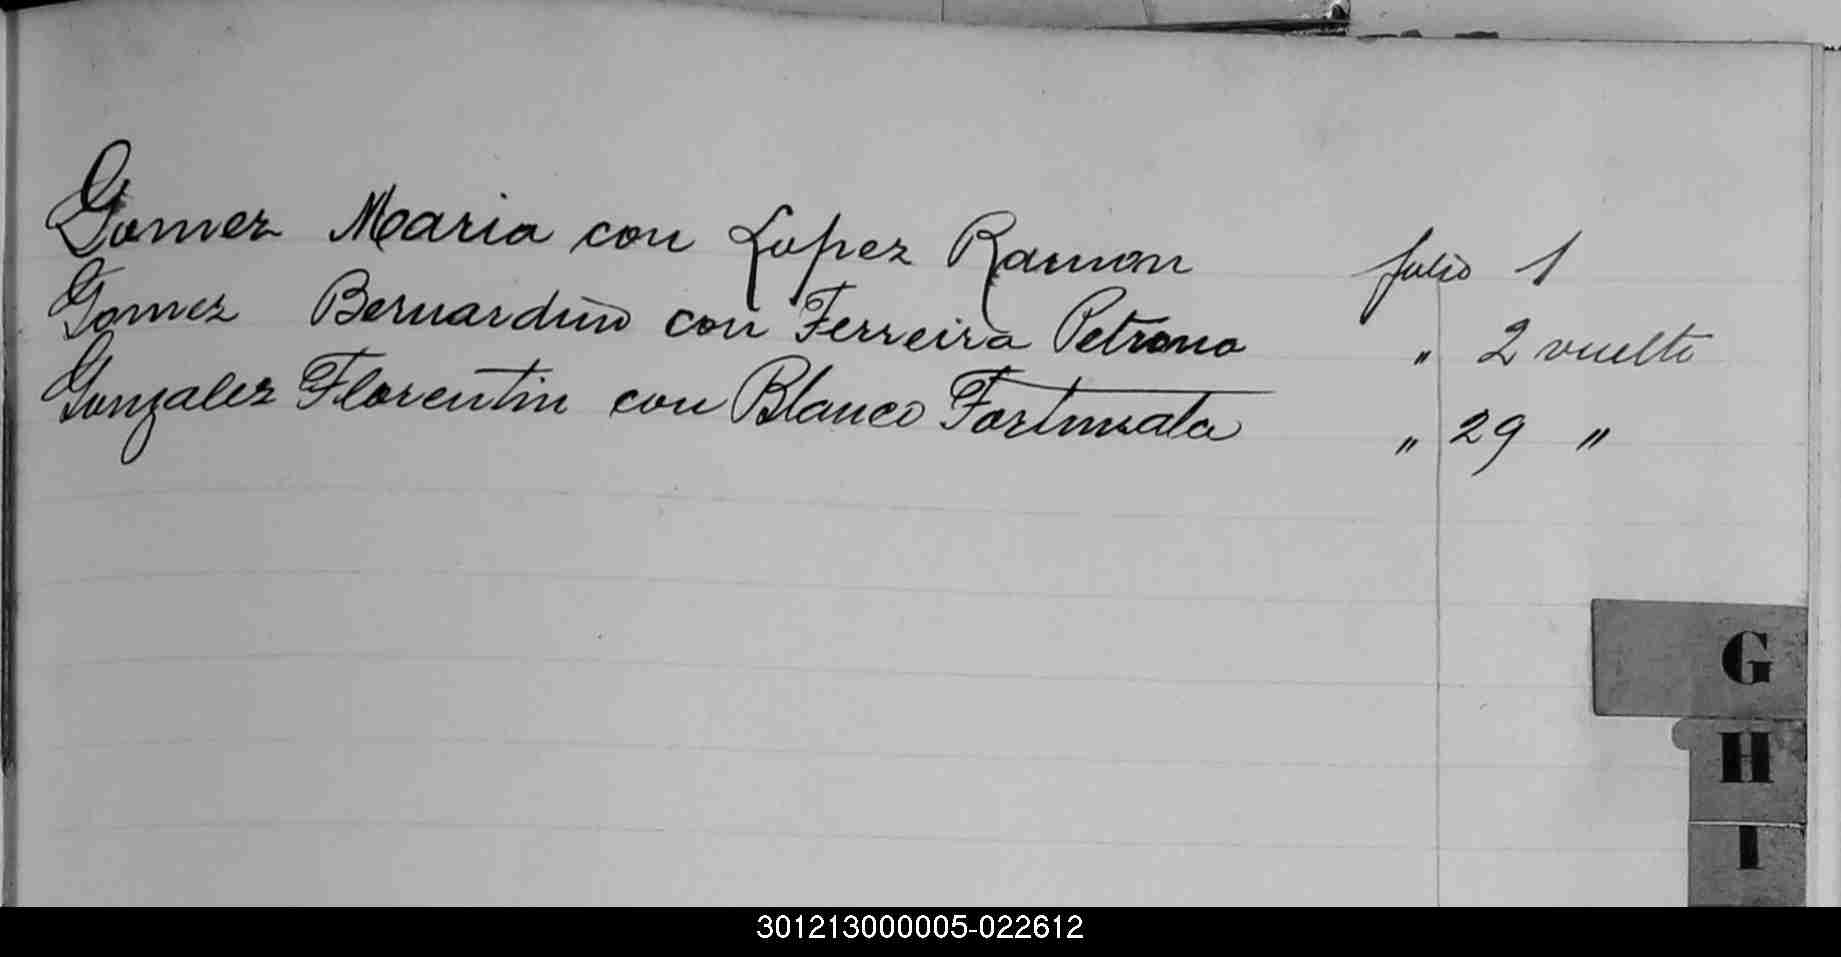 Gomez Maria con Lopez Ramon folio 1
Gomez Bernardino con Ferreira Petrona " 2 vuelto
Gonzalez Florentin con Blanco Fortunata " 29 "
G
H
I
301213000005-022612